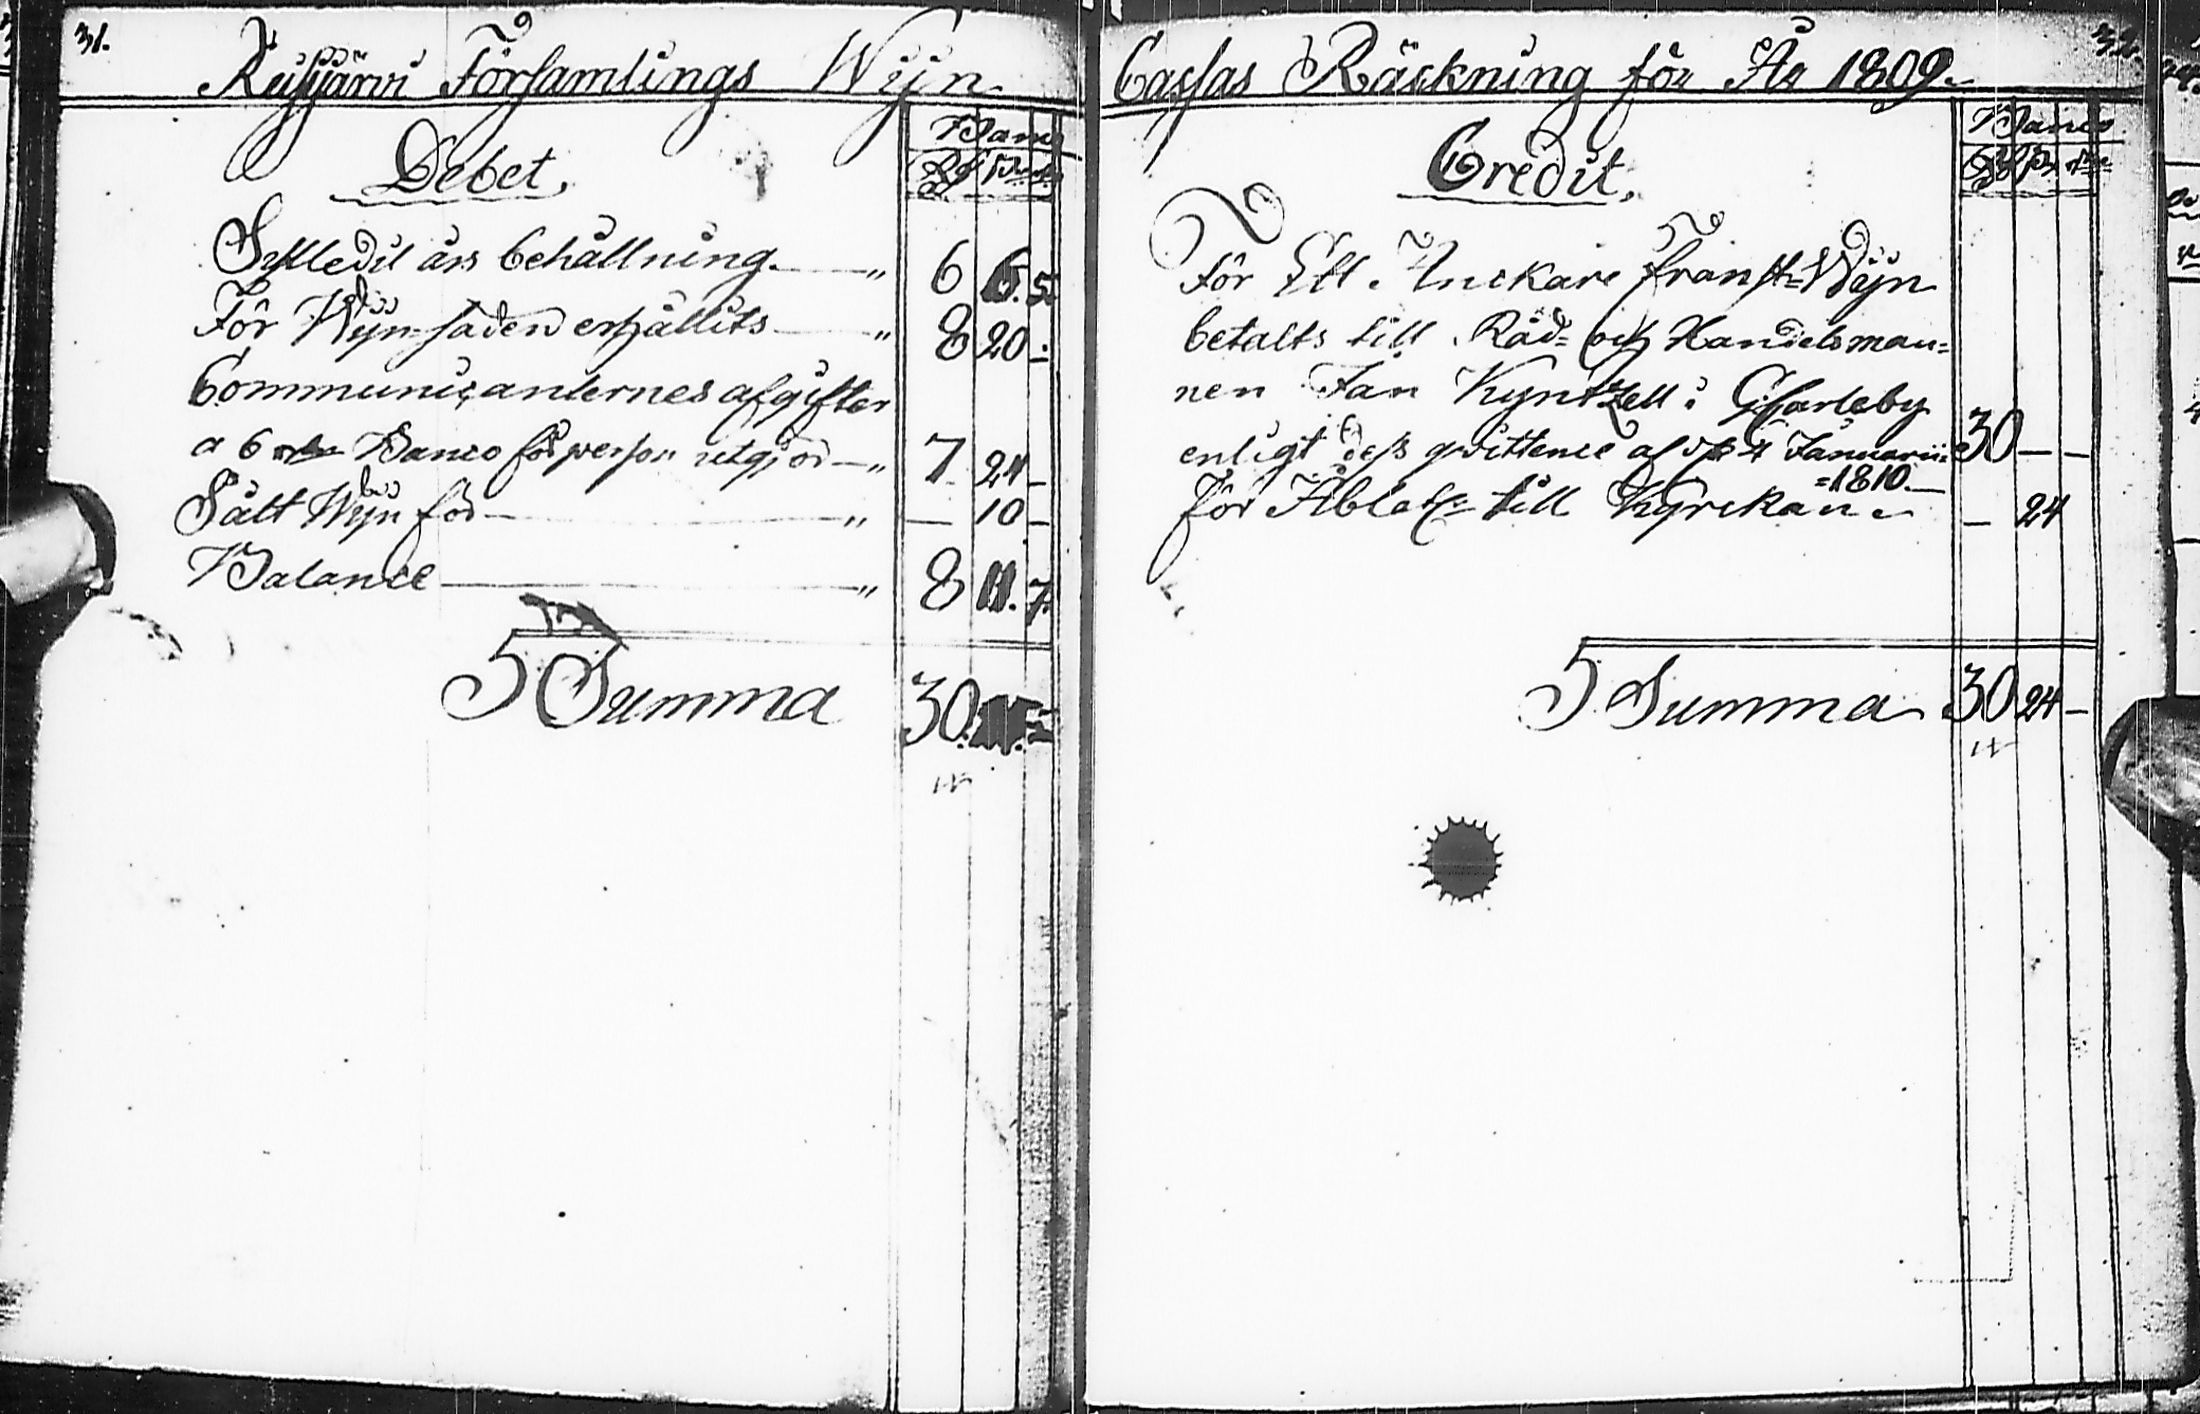 31.
Reisjärvi Församlings Wijn
Debet.
Banco
Rd s. r.
Sistledit års behållning — " 6 6. 5
För Wijn säden erhållits — " 8 20 -
Communicanternes afgifter
a 6 Banco för person utgjör — " 7 24 -
Sålt Wijn för — " — 10 -
Balance — " 8 11. 7.
Summa 30.
32.
Cassas Räckning för År 1809.
Credit.
Banco
Rd s. r.
För Ett Anckare Franst Wijn
betalts till Råd= och Handelsman=
nen Jan Kyntzell i GCarleby
enligt dess qvittence af d. 4 Januarii 30 — —
=1810.—
för Åblat till Kyrckan — 24
Summa 30 24 —